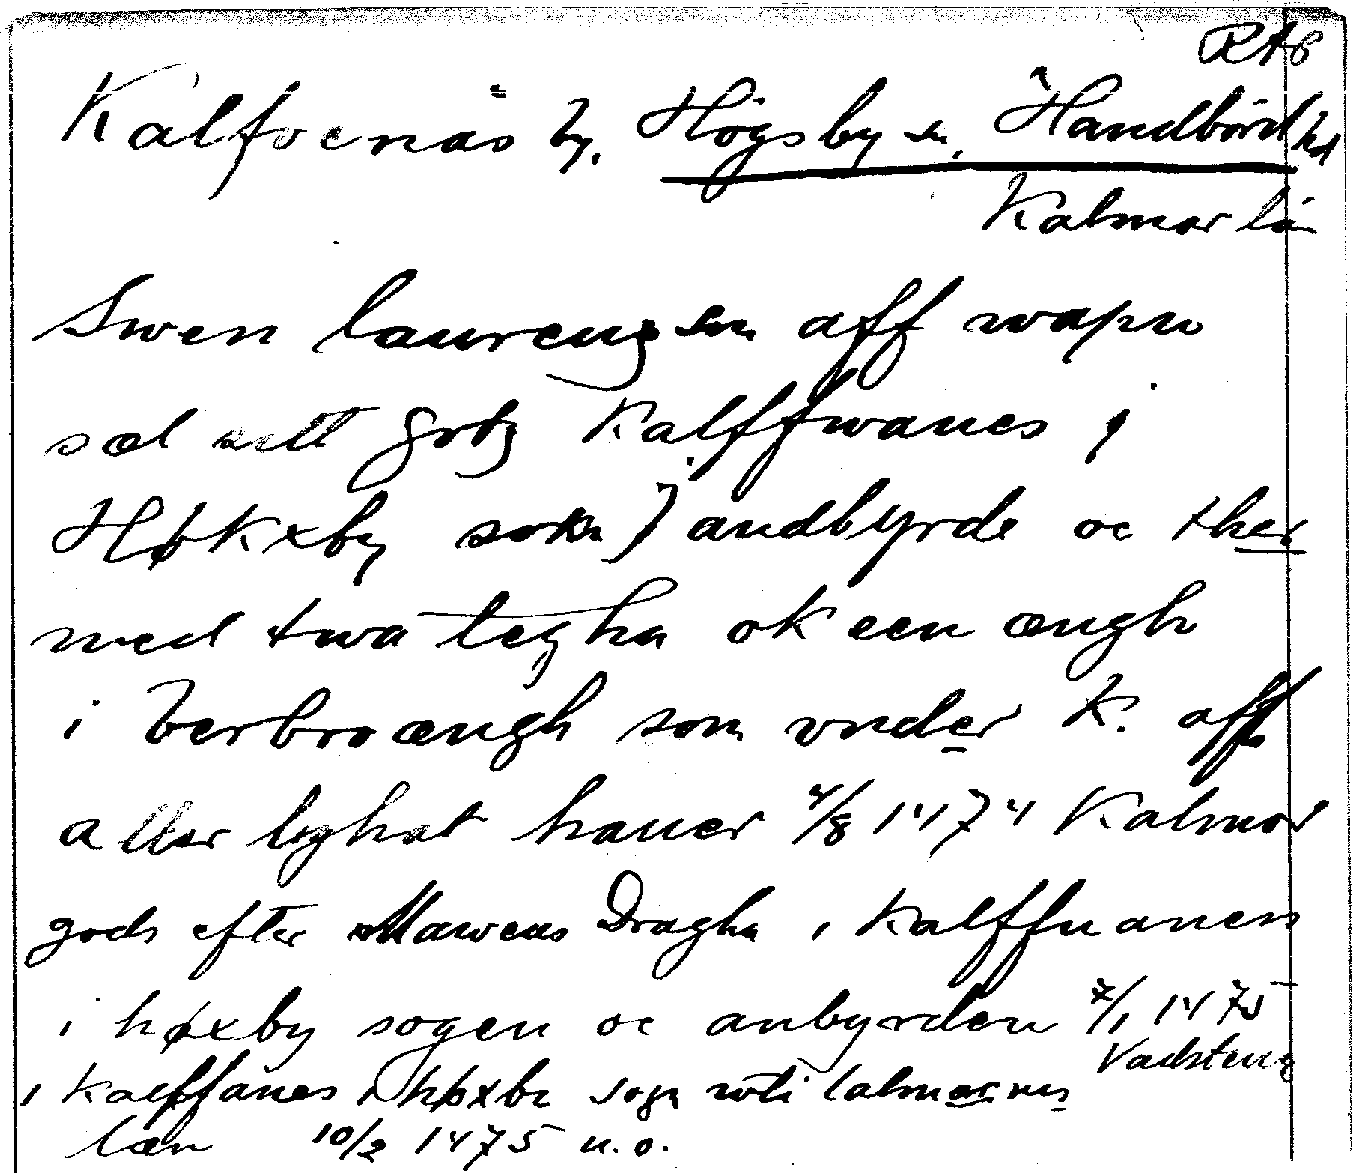 RA 8
Kalfvenäs by, Högsby sn, Handbörd hd
Kalmar län
Swen laurenzson aff wapn
sæl sitt godz Kalffwanes j
Høkxby sokn J andbyrde oc ther
med twa tegha ok een ængh
i Verbroængh som vnder K. aff
aller leghat hauer 4/8 1474 Kalmar
gods efter Marcus Dragha i Kalffuanes
i høxby sogen oc anbyrden 7/1 1475
Vadstena
i Kalffanes i høxby sogn wti calmarnes
læn 10/2 1475 u.o.